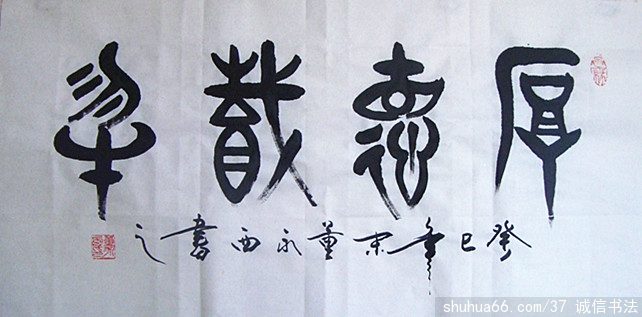 厚德載物
癸巳年末董永西書之
shuhua66.com/37 诚信书法